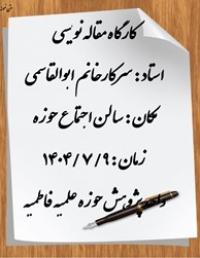 کارگاه مقاله نویسی
استاد: سرکار خانم ابوالقاسمی
مکان: سالن اجتماع حوزه
زمان: ۱۴۰۴/۷/۹
واحد پژوهش حوزه علمیه فاطمیه